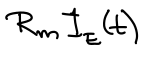 R_m I_E(t)